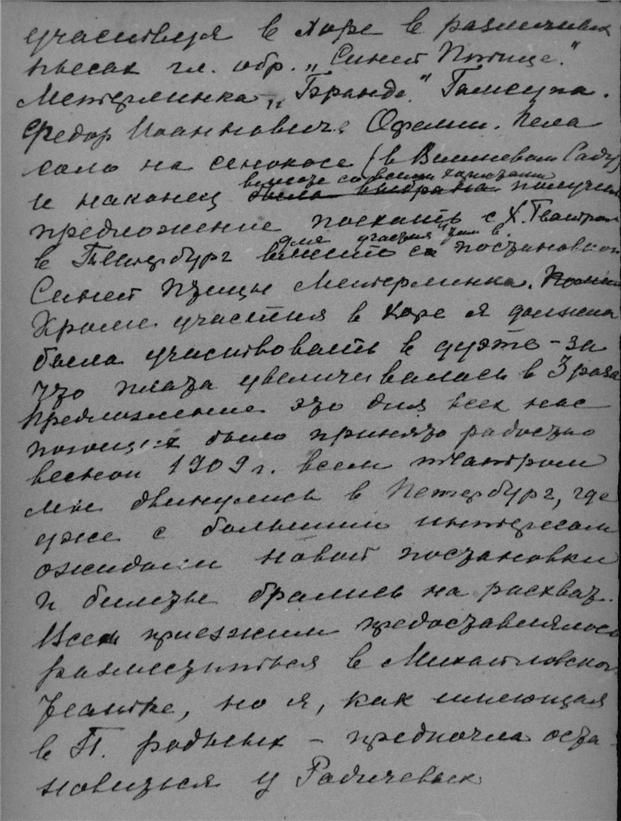 участвуя в хоре в различных
пьесах гл. обр. „Синей Птице"
Метерлинка, „Бранде" Гамсуна.
Федор Иоаннович, Офелии. Пела
соло на сенокосе (в Вишневом Саду)
и наконец была выбрана получила
вместе со всеми хористами
предложение поехать с Х. Театром
в Петербург вместе с постановкой
для участия
Синей птицы Метерлинка.
Кроме участия в хоре я должна
была участвовать в дуэте – за
что плата увеличивалась в 3 раза
Предложение это для всех нас
поющих было принято радостно
весной 1909 г. всем театром
мы двинулись в Петербург, где
уже с большим интересом
ожидали новой постановки
и билеты брались на расхват.
Всем приезжим предоставлялось
разместиться в Михайловском
театре, но я, как имеющая
в П. родных – предпочла оста
новиться у Родичевых